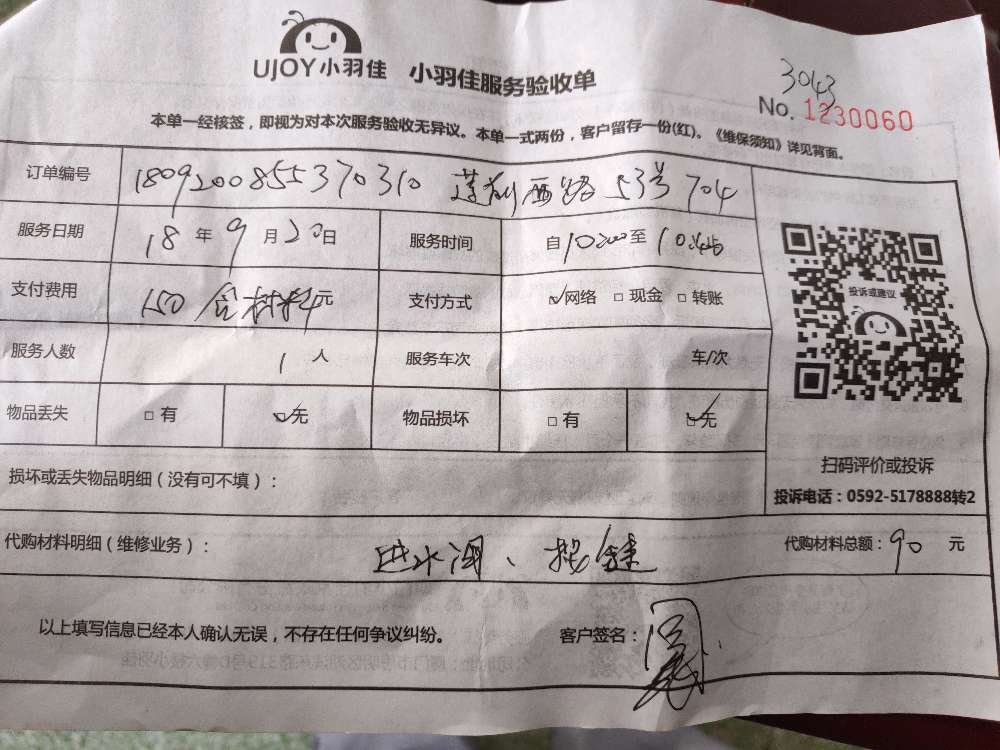 UJOY小羽佳 小羽佳服务验收单
3043
No. 1230060
本单一经核签，即视为对本次服务验收无异议。本单一式两份，客户留存一份(红)。《维保须知》详见背面。
订单编号 1809200855370310 莲西路 53号 704
服务日期 18 年 9 月 20 日 服务时间 自 10:00 至 10:45
支付费用 150 含材料 元 支付方式 ☑网络 □现金 □转账
服务人数 1 人 服务车次 车/次
物品丢失 □有 ☑无 物品损坏 □有 ☑无
投诉或建议
扫码评价或投诉
投诉电话：0592-5178888转2
损坏或丢失物品明细（没有可不填）：
代购材料明细（维修业务）： 进水阀、按键 代购材料总额：90 元
以上填写信息已经本人确认无误，不存在任何争议纠纷。 客户签名：